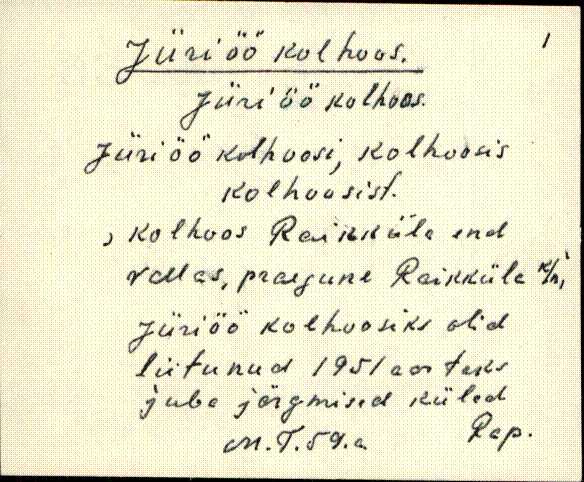 Jüriöö kolhoos. 1
Jüriöö kolhoos.
Jüriöö kolhoosi, kolhoosis
kolhoosist.
, kolhoos Raikküla end
vallas, praegune Raikküla k/n,
Jüriöö kolhoosiks olid
liitunud 1951 aastaks
juba järgmised küled
M.T.59.a Rap.